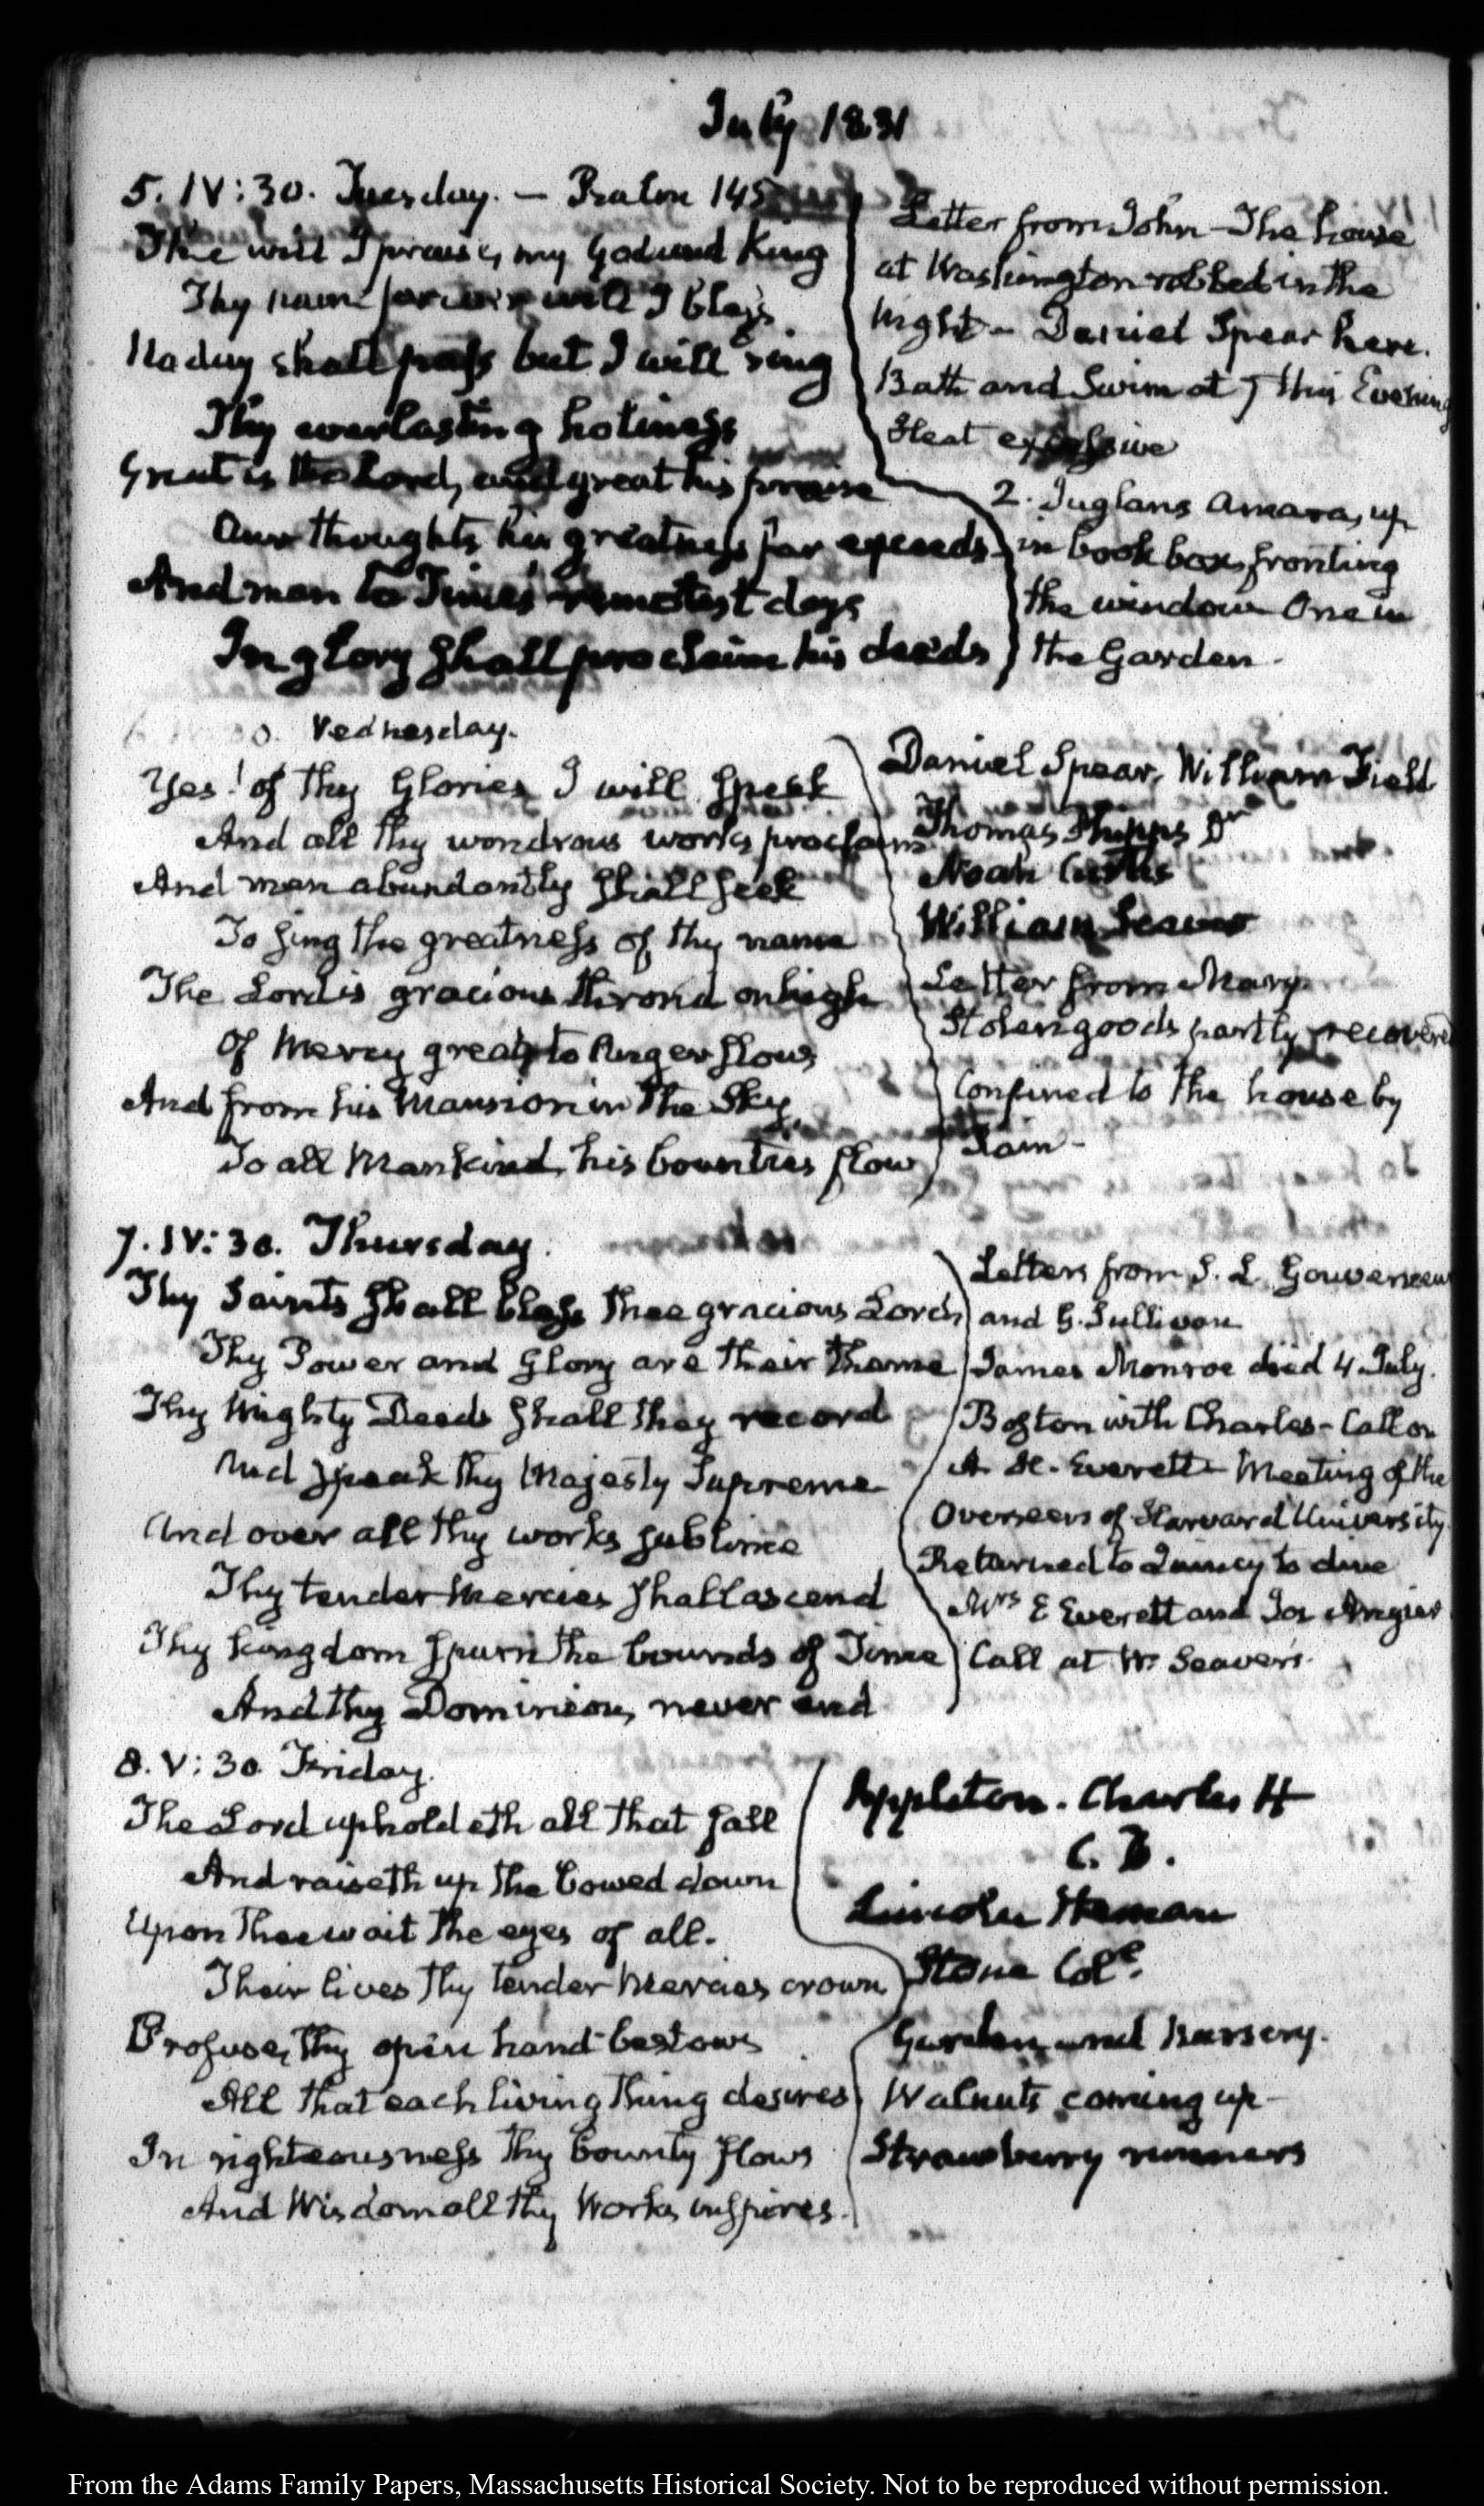 July 1831
5. IV:30. Tuesday. — Psalm 145
Thee will I praise, my God and King
Thy name forever will I bless
No day shall pass but I will sing
Thy everlasting holiness
Great is the Lord, and great his praise
Our thoughts his greatness far exceeds
And man to Time's remotest days
In glory shall proclaim his deeds
Letter from John — The house
at Washington robbed in the
Night — Daniel Spear here.
Bath and Swim at 7 this Evening
Heat excessive
2. Juglans amara, up
in book box, fronting
the window One in
the Garden.
Wednesday.
Yes! of thy Glories I will speak
And all thy wondrous works proclaim
And man abundantly shall seek
To sing the greatness of thy name
The Lord is gracious throned on high
Of Mercy great, to Anger slow
And from his Mansion in the Sky
To all Mankind, his bounties flow
Daniel Spear, William Field
Thomas Phipps Dr
Noah Curtis
William Seaver
Letter from Mary
Stolen goods partly recovered
Confined to the house by
Rain —
7. IV:30. Thursday.
Thy Saints shall bless thee gracious Lord
Thy Power and Glory are their theme
Thy Mighty Deeds shall they record
And speak thy Majesty Supreme
And over all thy works sublime
Thy tender Mercies shall ascend
Thy kingdom spurn the bounds of Time
And thy Dominion, never end
Letters from S. L. Gouverneur
and G. Sullivan
James Monroe died 4. July.
Boston with Charles — Call on
A. H. Everett — Meeting of the
Overseers of Harvard University
Returned to Quincy to dine
Mrs E Everett and Jos Angier
Call at W. Seaver's.
8. V:30. Friday.
The Lord upholdeth all that fall
And raiseth up the bowed down
Upon Thee wait the eyes of all.
Their lives thy tender Mercies crown
Profuse, thy open hand bestows
All that each living thing desires
In righteousness thy bounty flows
And Wisdom all thy Works inspires.
Appleton. Charles H
C. D.
Lincoln Heman
Stone Col.
Garden and Nursery.
Walnuts coming up —
Strawberry runners
From the Adams Family Papers, Massachusetts Historical Society. Not to be reproduced without permission.